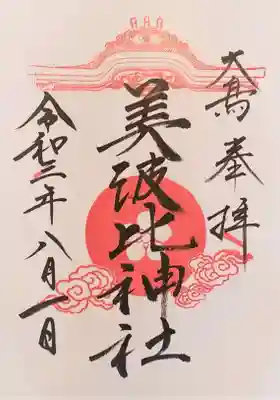 大髙奉拝
美波比神社
令和三年八月一日